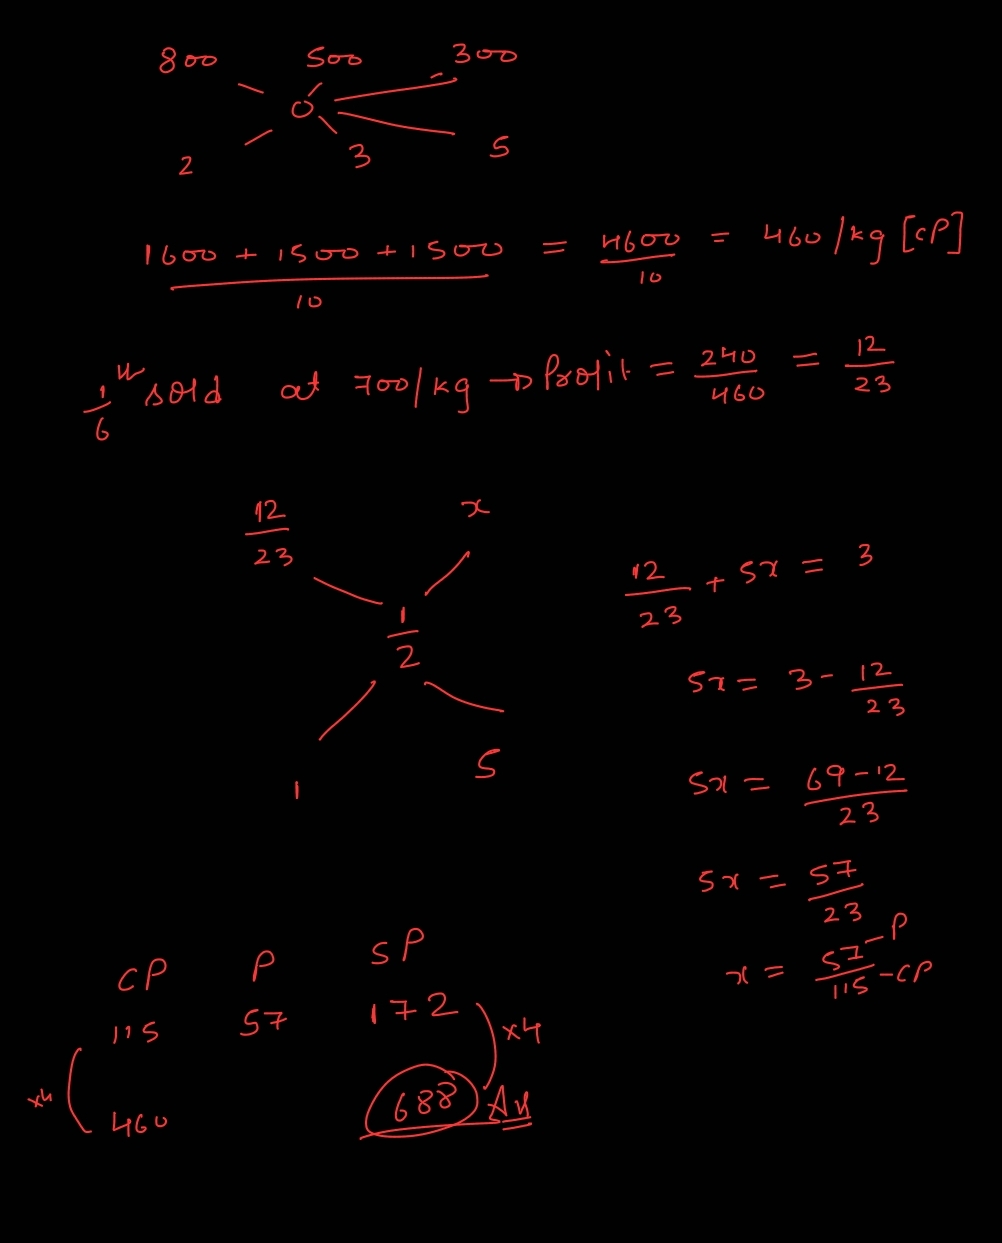 800 500 300
0
2 3 5
1600 + 1500 + 1500 = 4600 = 460/kg [CP]
10 10
1/6 th sold at 700/kg → Profit = 240/460 = 12/23
12/23 x
1/2
1 5
12/23 + 5x = 3
5x = 3 - 12/23
5x = 69-12/23
5x = 57/23
x = 57/115 -P -CP
CP P SP
115 57 172
x4 x4
460 688 Ans